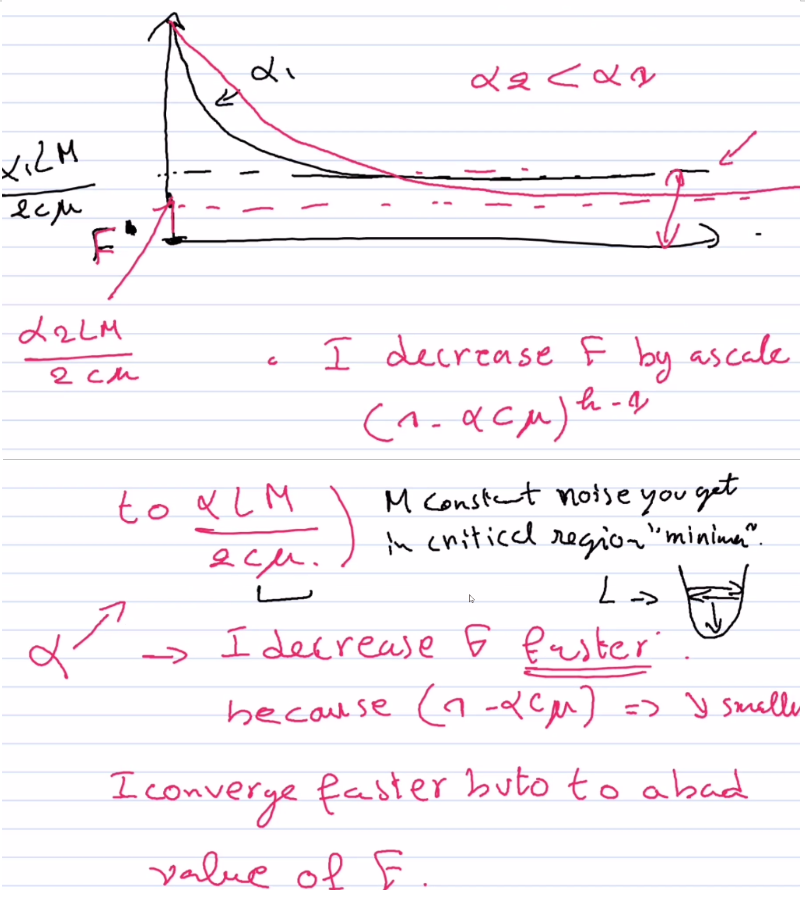 α₁
α2 < α1
α₁LM
2cμ
F*
α2LM
2cμ
. I decrease F by ascale
(1-αcμ)^(k-1)
to αLM
2cμ.)
M constant noise you get
in critical region "minima".
L →
α ↗ → I decrease F faster.
because (1-αcμ) => ↘ smaller
I converge faster buto to a bad
value of F.